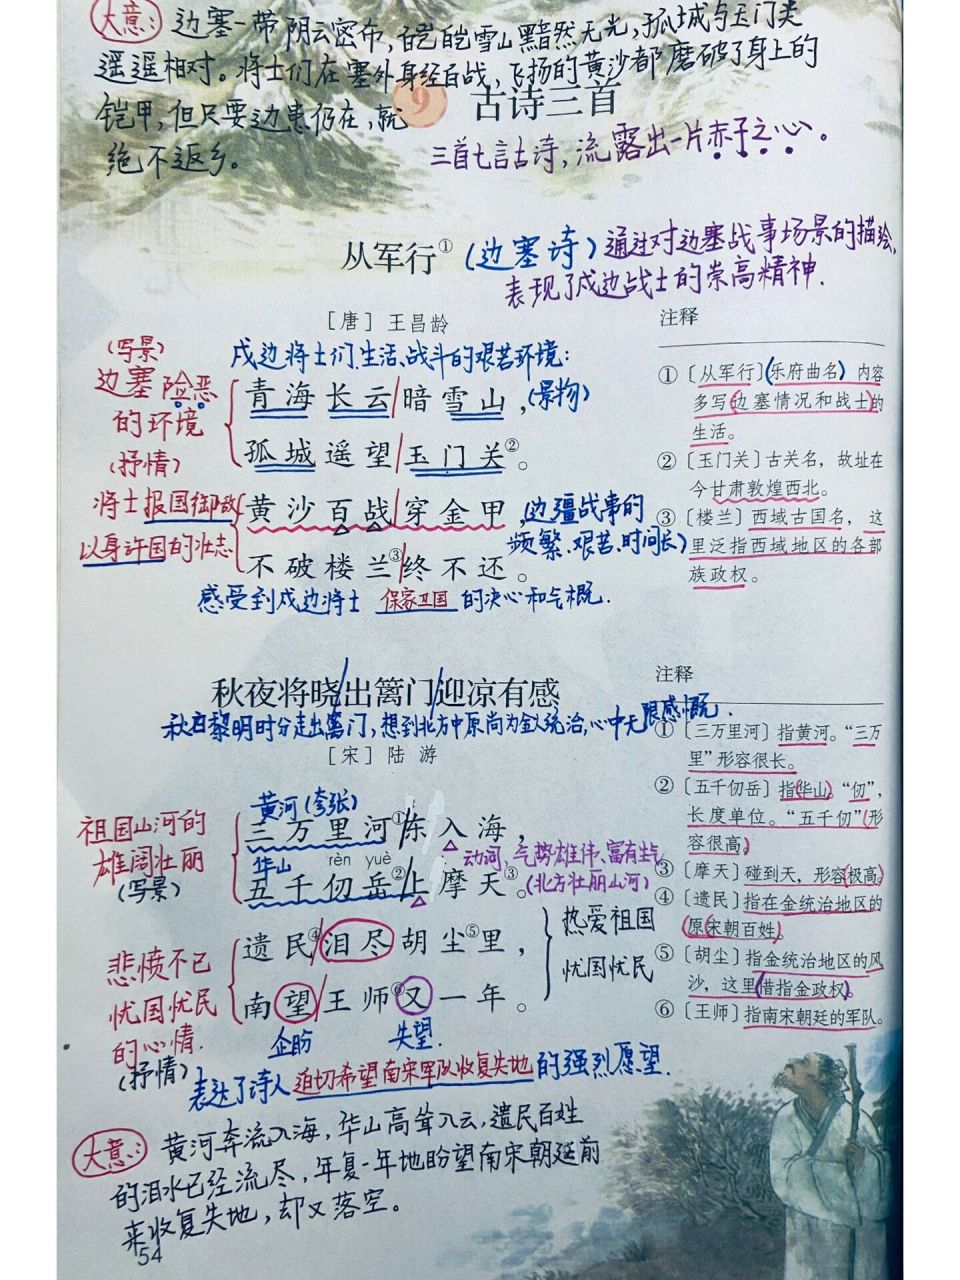 大意：边塞一带阴云密布，皑皑雪山黯然无光，孤城与玉门关
遥遥相对。将士们在塞外身经百战，飞扬的黄沙都磨破了身上的
铠甲，但只要边患仍在，就
绝不返乡。
9 古诗三首
三首七言古诗，流露出一片赤子之心。
从军行①（边塞诗）通过对边塞战事场景的描绘，
表现了戍边战士的崇高精神.
［唐］王昌龄
戍边将士们生活、战斗的艰苦环境：
（写景）
边塞险恶
的环境
青海长云/暗雪山，（景物）
孤城遥望/玉门关②。
（抒情）
将士报国御敌
以身许国的壮志
黄沙百战/穿金甲，边疆战事的
频繁、艰苦、时间长）
不破楼兰③/终不还。
感受到戍边将士 保家卫国 的决心和气概.
注释
①〔从军行〕（乐府曲名）内容
多写（边塞情况和战士）的
生活。
②〔玉门关〕古关名，故址在
今甘肃敦煌西北。
③〔楼兰〕西域古国名，这
里泛指西域地区的各部
族政权。
秋夜将晓/出篱门/迎凉有感
秋夜黎明时分走出篱门，想到北方中原尚为金人统治，心中无限感慨.
［宋］陆游
祖国山河的
雄阔壮丽
（写景）
黄河（夸张）
三万里河①/东入海，
动词，气势雄伟、富有生气
华山
rèn yuè
五千仞岳②/上摩天③。（北方壮丽山河）
悲愤不已
忧国忧民
的心情.
（抒情）
遗民④/泪尽胡尘⑤里，
南望/王师⑥又一年。
热爱祖国
忧国忧民
企盼 失望.
表达了诗人迫切希望南宋军队收复失地的强烈愿望.
注释
①〔三万里河〕指黄河。“三万
里”形容很长。
②〔五千仞岳〕指（华山）。“仞”，
长度单位。“五千仞”（形
容很高）。
③〔摩天〕碰到天，形容（极高）。
④〔遗民〕指在金统治地区的
原（宋朝百姓）。
⑤〔胡尘〕指金统治地区的风
沙，这里（借指金政权）。
⑥〔王师〕指南宋朝廷的军队。
大意：黄河奔流入海，华山高耸入云，遗民百姓
的泪水已经流尽，年复一年地盼望南宋朝廷前
来收复失地，却又落空。
54